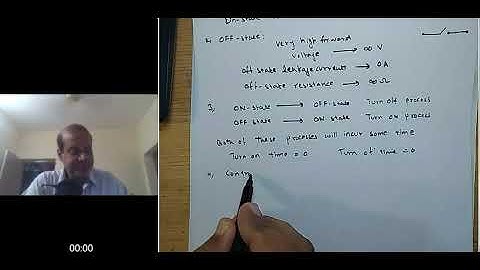 On-state
2, OFF-state: Very high forward
voltage → ∞ V
Off state leakage currents → 0A
Off-state resistance → ∞ Ω
3, ON-state → OFF-state Turn Off process
OFF state → ON-state Turn on process
Both of these processes will incur some time
Turn on time = 0 Turn off time = 0
4, Contr
00:00